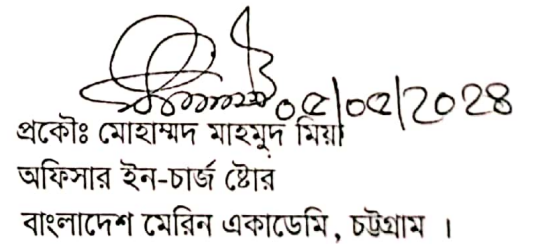 ০৫/০৫/২০২৪
প্রকৌঃ মোহাম্মদ মাহমুদ মিয়া
অফিসার ইন-চার্জ ষ্টোর
বাংলাদেশ মেরিন একাডেমি, চট্টগ্রাম ।